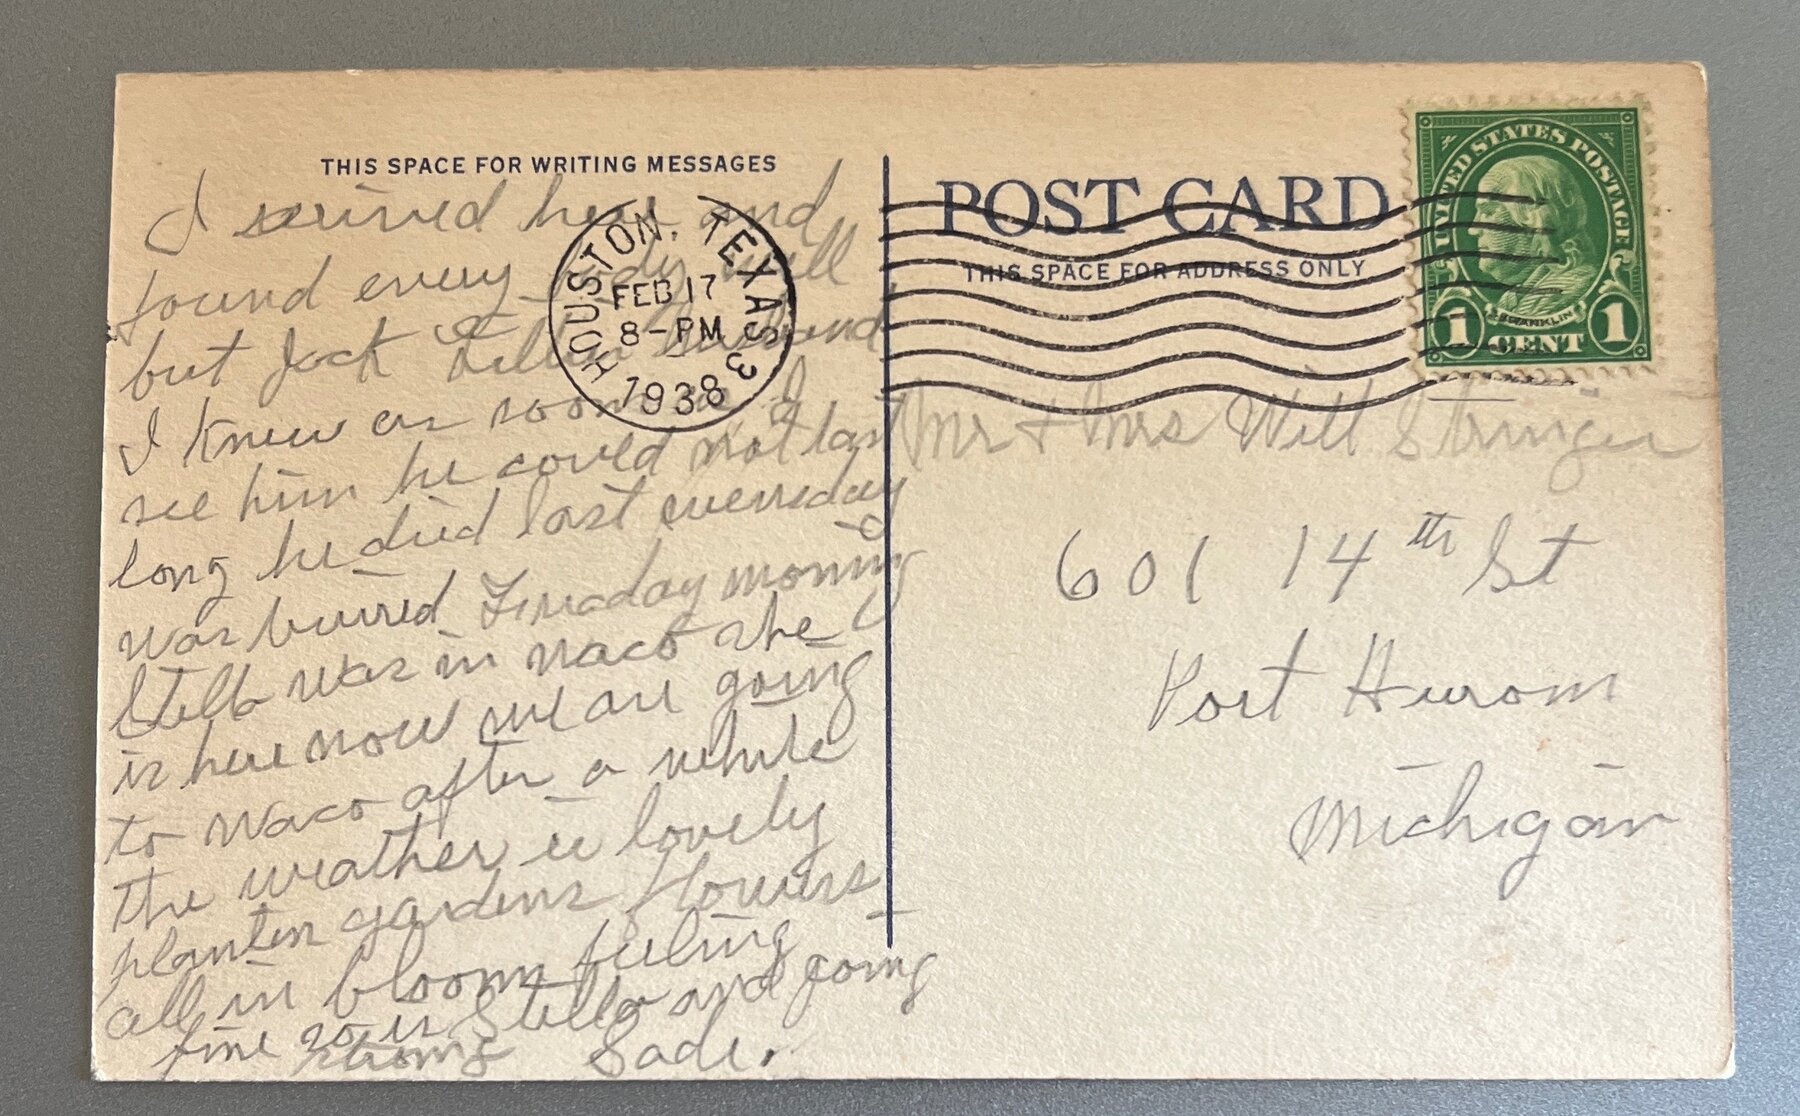 THIS SPACE FOR WRITING MESSAGES
I arrived here and
found every body well
but Jack husband
I knew as soon as I
see him he could not last
long he died last
was burried morning
Stella was in Waco she
is here now we are going
to Waco after a while
the weather is lovely
planten gardens flowers
all in bloom feeling
fine so is Stella and going
strong Sade.
HOUSTON, TEXAS 3
FEB 17
8-PM
1938
POST CARD
THIS SPACE FOR ADDRESS ONLY
UNITED STATES POSTAGE
FRANKLIN
1 CENT 1
Mr & Mrs Will Stringer
601 14th St
Port Huron
Michigan